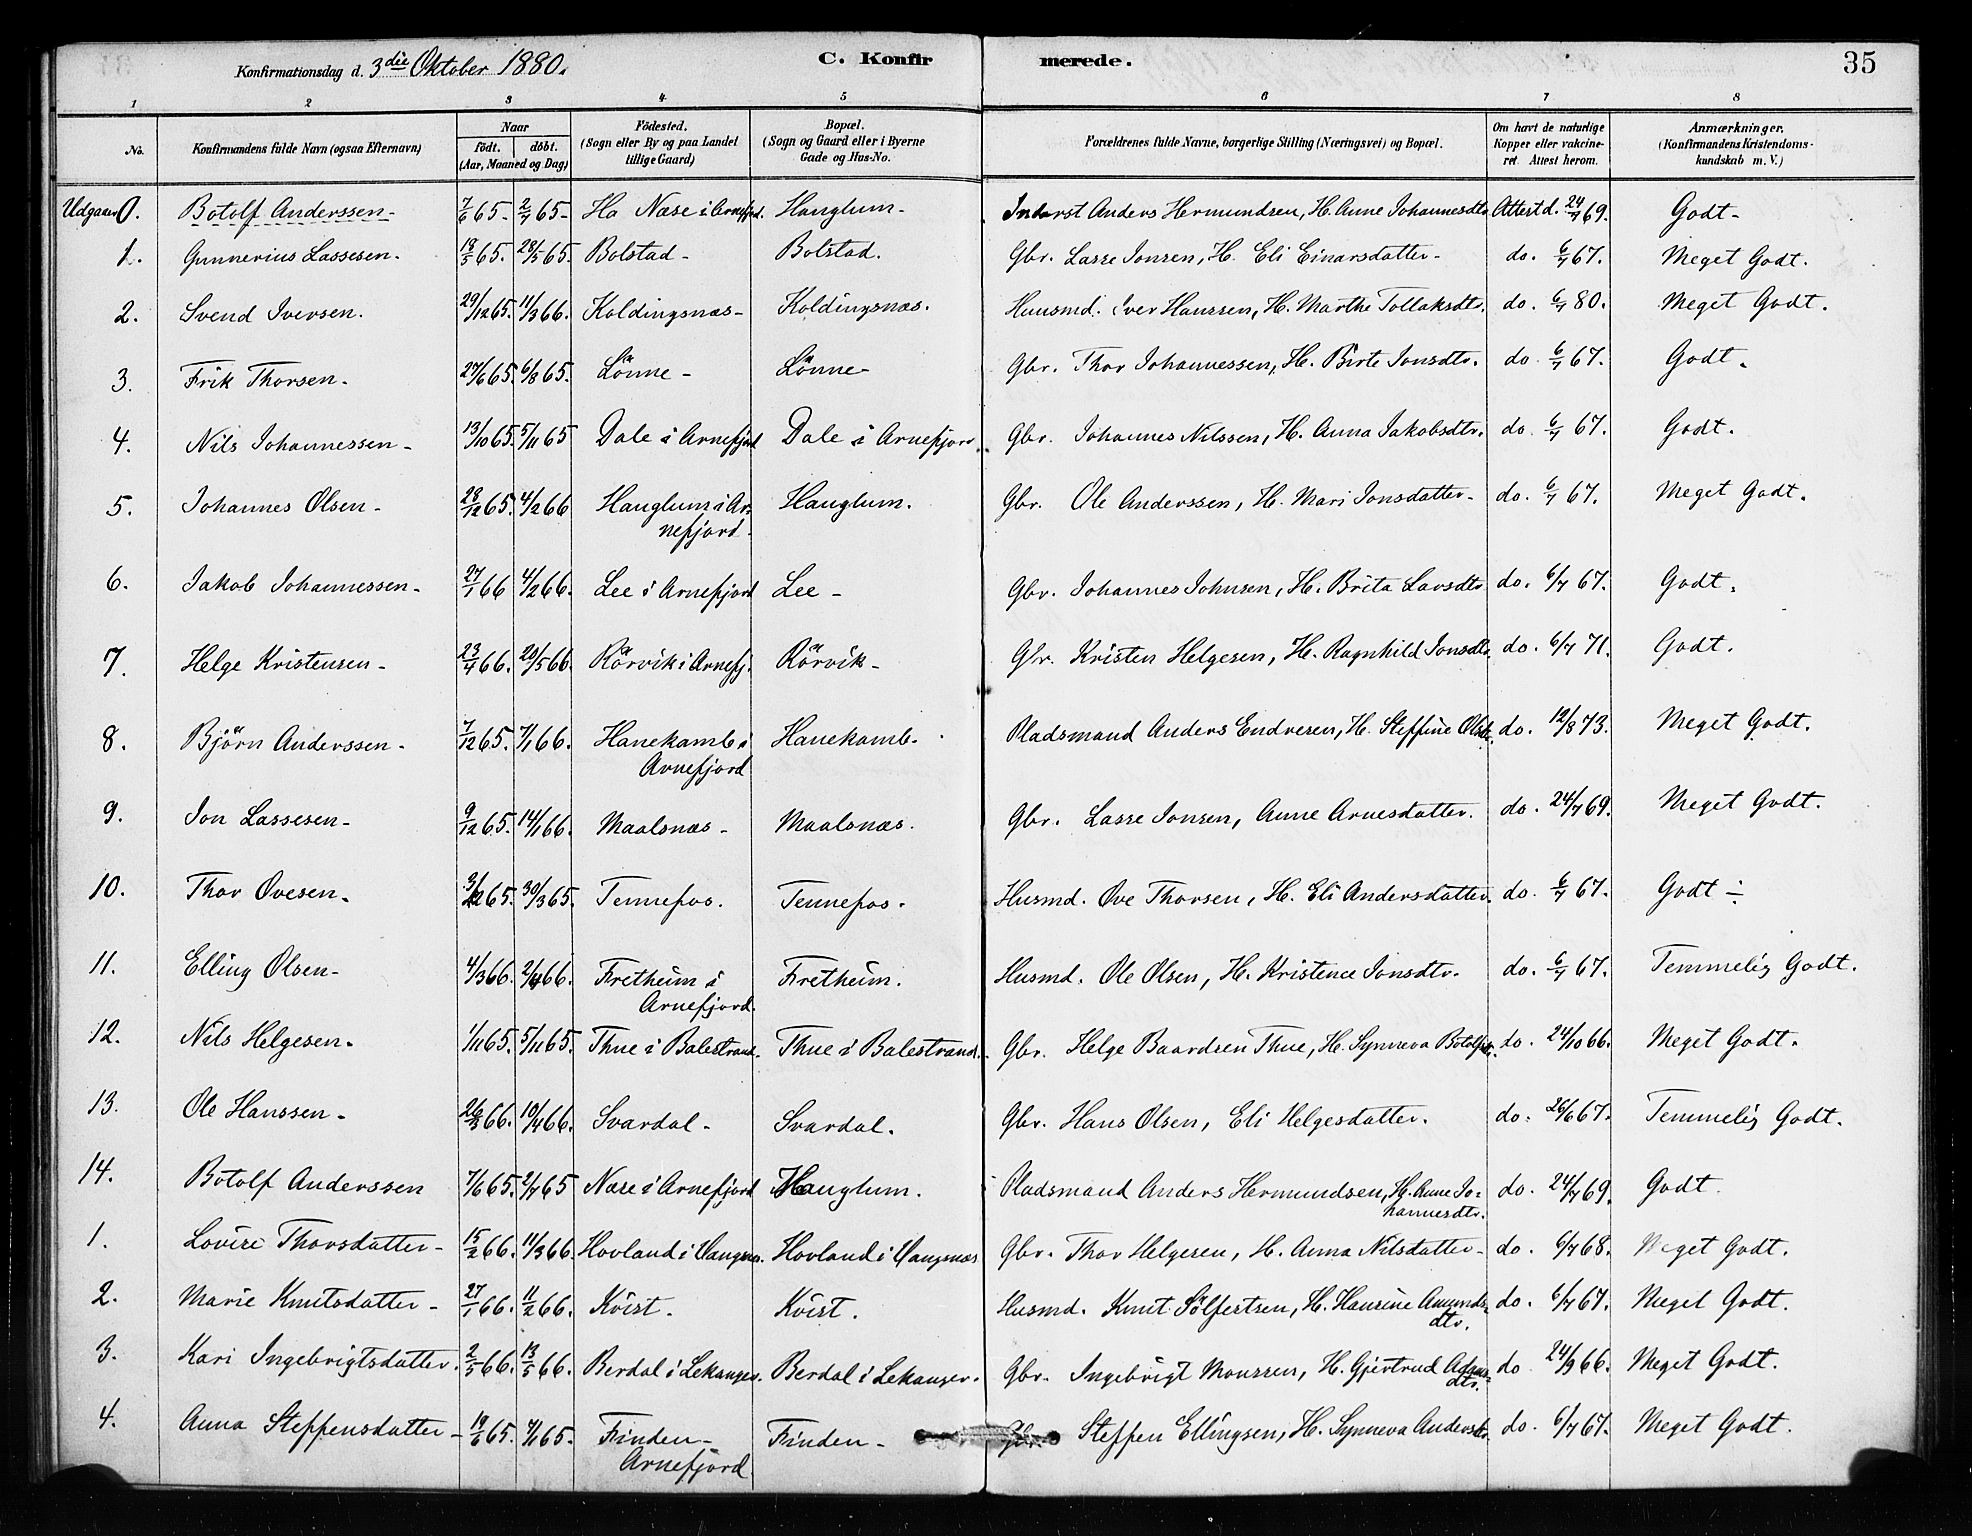 Konfirmationsdag d. 3die Oktober 1880.
C. Konfir
merede.
35
1 2 3 4 5 6 7 8
No.
Konfirmandens fulde Navn (ogsaa Efternavn)
Naar
födt. döbt.
(Aar, Maaned og Dag)
Födested.
(Sogn eller By og paa Landet
tillige Gaard)
Bopæl.
(Sogn og Gaard eller i Byerne
Gade og Hus-No.
Forældrenes fulde Navne, borgerlige Stilling (Næringsvei) og Bopæl.
Om havt de naturlige
Kopper eller vakcine-
ret. Attest herom.
Anmærkninger.
(Konfirmandens Kristendoms-
kundskab m. V.)
Udgaar 0. Botolf Anderssen - 7/6 65 - 2/7 65 - Næse i Arnefjord. Hauglum - Anders Hermundsen, H. Anne Johannesdtr. Attest d. 24/7 69. Godt -
1. Gunnerius Lassesen. 18/3 65. 28/5 65. Bolstad - Bolstad. Gbr. Lasse Jonsen, H. Eli Einarsdatter - do. 6/7 67. Meget Godt.
2. Svend Iversen. 29/12 65. 11/3 66. Koldingsnæs - Koldingsnæs. Huusmd. Iver Hanssen, H. Marthe Tollaksdtr. do. 6/7 80. Meget Godt.
3. Erik Thorsen - 27/6 65. 6/8 65. Lönne - Lönne - Gbr. Thor Johannessen, H. Birte Jonsdtr. do. 6/7 67. Godt.
4. Nils Johannessen - 13/10 65. 5/11 65 Dale i Arnefjord Dale i Arnefjord Gbr. Johannes Nilssen, H. Anna Jakobsdtr. do. 6/7 67. Godt.
5. Johannes Olsen - 28/12 65. 4/2 66 Hauglum i Ar- Hauglum. Gbr. Ole Anderssen, H. Mari Jonsdatter - do. 6/7 67. Meget Godt.
nefjord.
6. Jakob Johannessen - 27/1 66 4/2 66. Lee i Arnefjord Lee - Gbr. Johannes Johnsen, H. Brita Larsdtr do. 6/7 67. Godt.
7. Helge Kristensen - 23/4 66. 20/5 66. Rörvik i Arnefj. Rörvik - Gbr. Kristen Helgesen, H. Ragnhild Jonsdtr. do. 6/7 71. Godt.
8. Björn Anderssen - 7/12 65. 7/1 66. Hanekamb i Hanekamb. Pladsmand Anders Endresen, H. Steffine Olsdtr. do. 12/8 73. Meget Godt.
Arnefjord
9. Jon Lassesen - 9/12 65. 14/1 66. Maalsnæs - Maalsnæs. Gbr. Lasse Jonsen, Anne Arnesdatter. do. 24/7 69. Meget Godt.
10. Thor Ovesen. 3/2 65. 30/3 65. Tennefos. Tennefos. Husmd. Ove Thorsen, H. Eli Andersdatter. do. 6/7 67. Godt ÷
11. Elling Olsen - 4/3 66. 2/4 66. Fretheim i Fretheim. Husmd. Ole Olsen, H. Kristence Jonsdtr. do. 6/7 67. Temmelig Godt.
Arnefjord.
12. Nils Helgesen. 1/11 65. 5/11 65. Thue i Balestrand. Thue i Balestrand. Gbr. Helge Baardsen Thue, H. Synneva Botolfsdtr. do. 24/10 66. Meget Godt.
13. Ole Hanssen - 26/3 66. 10/4 66. Svardal - Svardal. Gbr. Hans Olsen, Eli Helgesdatter. do. 26/6 67. Temmelig Godt.
14. Botolf Anderssen 7/6 65. 2/7 65 Næse i Arnefjord Hauglum. Pladsmand Anders Hermundsen, H. Anne Jo- do. 24/7 69. Godt.
hannesdtr.
1. Lovise Thorsdatter - 15/2 66. 11/3 66. Hovland i Vangsnæs. Hovland i Vangsnæs Gbr. Thor Helgesen, H. Anna Nilsdatter - do. 6/7 68. Meget Godt.
2. Marie Knutsdatter - 27/1 66. 11/2 66. Kvist. Kvist. Husmd. Knut Sölfertsen, H. Hansine Amunds- do. 6/7 67. Meget Godt.
dtr.
3. Kari Ingebrigtsdatter. 2/5 66. 13/5 66. Berdal i Lekanger. Berdal i Lekanger. Gbr. Ingebrigt Monssen, H. Gjertrud do 24/9 66. Meget Godt.
dtr.
4. Anna Steffensdatter - 19/6 65. 7/11 65. Finden - Finden - Gbr. Steffen Ellingsen, H. Synneva Andersdtr. do. 6/7 67. Meget Godt.
Arnefjord